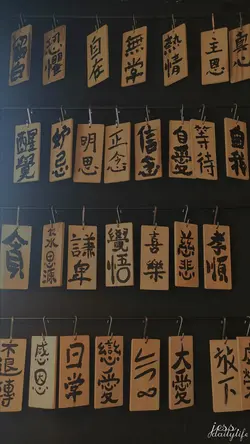 恐懼
自在
無常
熱情
主恩
醒覺
妒忌
明思
正念
信念
自愛
等待
自我
貪
飲水思源
謙卑
覺悟
喜樂
慈悲
孝順
不退轉
感恩
戀愛
大愛
放下
jess
dailylife